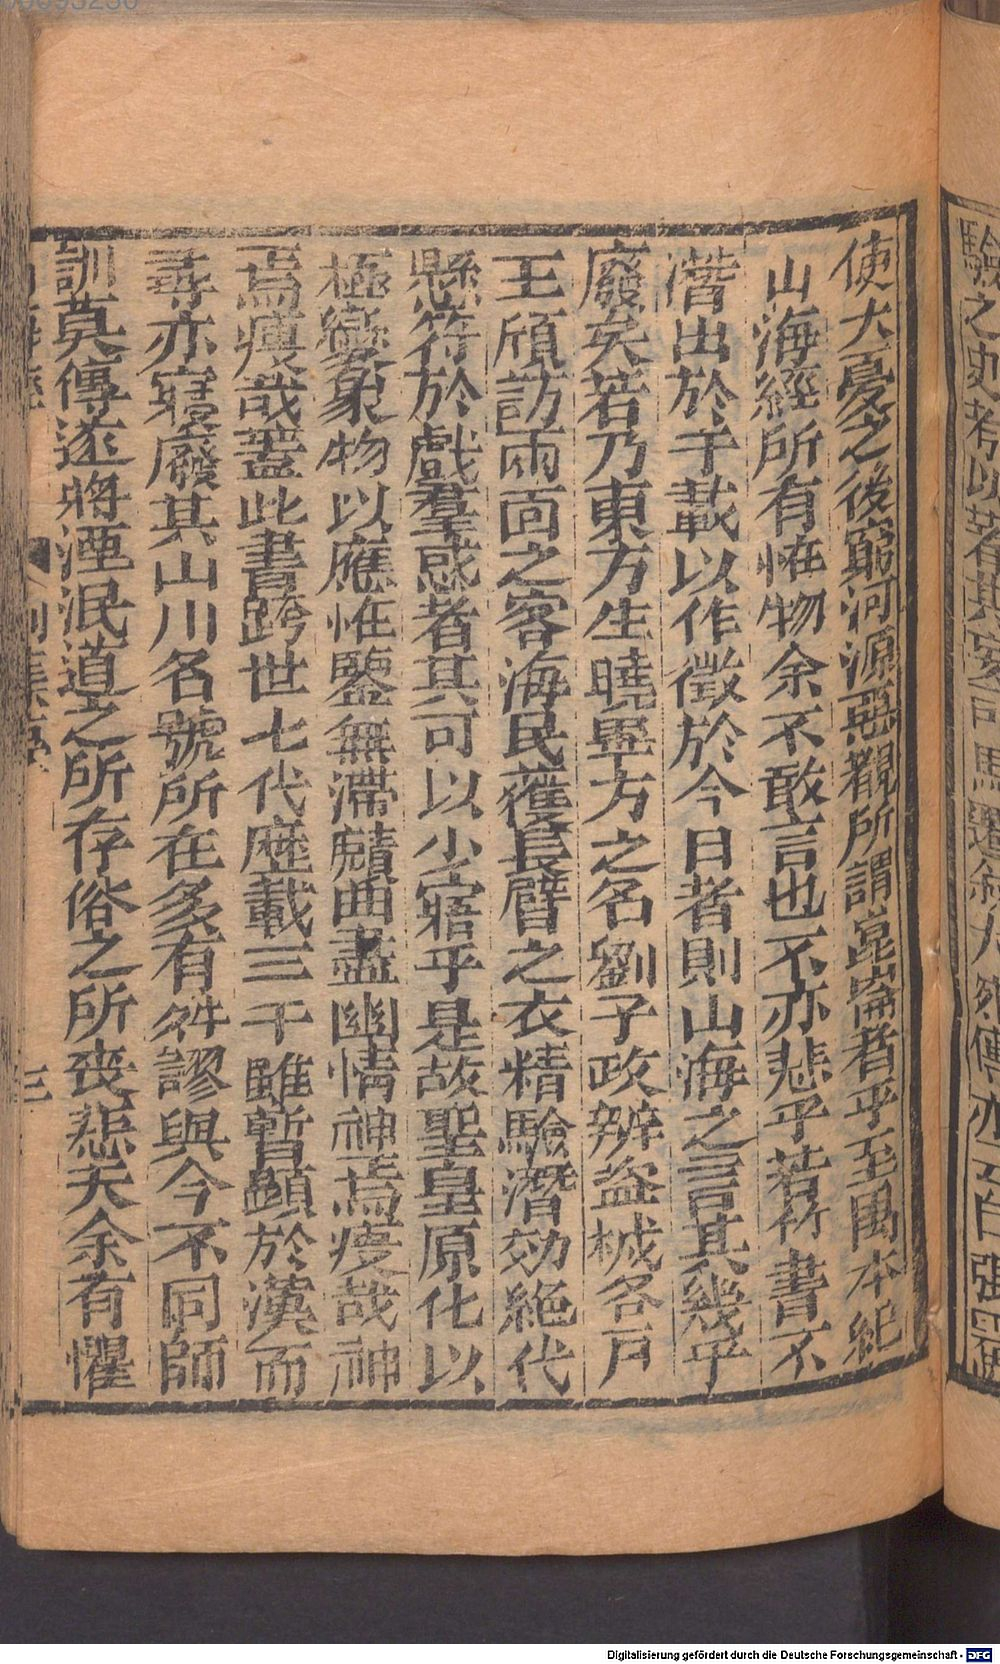 驗之史考以著其妄司馬遷叙大宛傳亦云自張騫使
使大夏之後窮河源惡覩所謂崑崙者乎至禹本紀
山海經所有怪物余不敢言也不亦悲乎若竹書不
潛出於千載以作徵於今日者則山海之言其幾乎
廢矣若乃東方生曉畢方之名劉子政辨盜械各戶
王頎訪兩面之客海民獲長臂之衣精驗潛効絕代
懸符於戲羣惑者其可以少寤乎是故聖皇原化以
極變象物以應怪鑒無滯賾曲盡幽情神焉廋哉神
焉廋哉蓋此書跨世七代歷載三千雖暫顯於漢而
尋亦寢廢其山川名號所在多有舛謬與今不同師
訓莫傳遂將湮泯道之所存俗之所喪悲夫余有懼
三
Digitalisierung gefördert durch die Deutsche Forschungsgemeinschaft - DFG